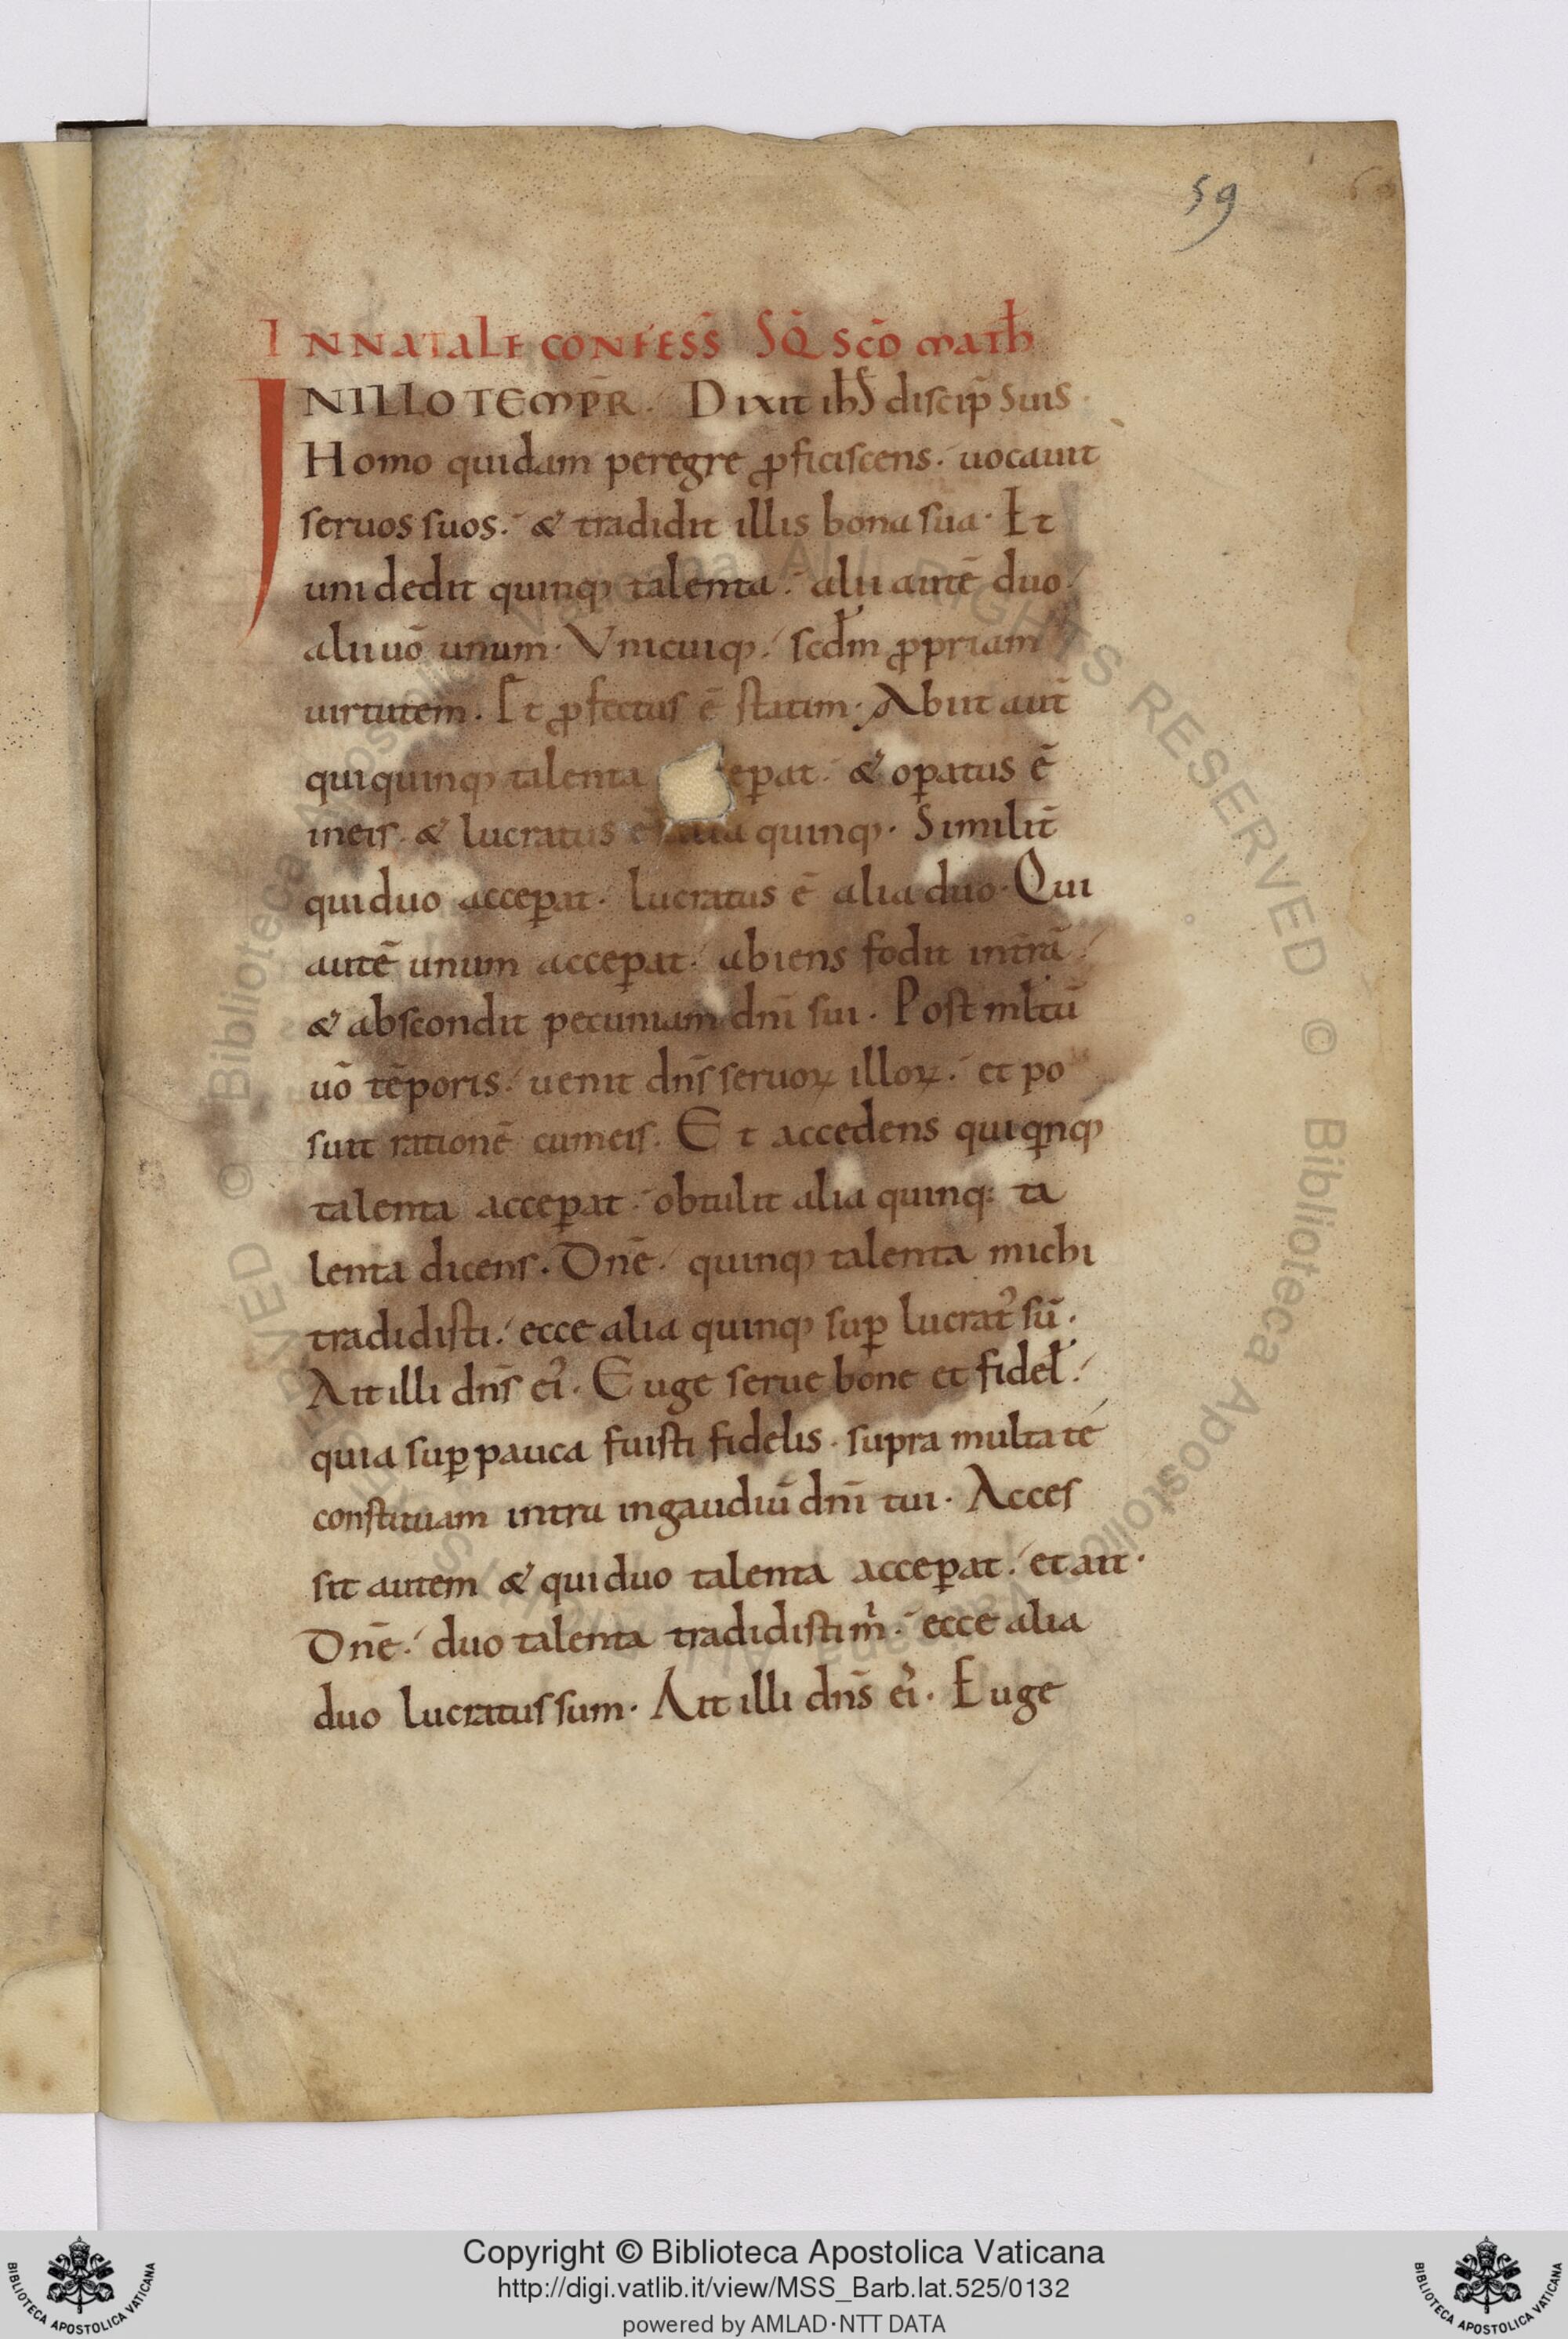 59
INNATALE CONFESS̄ SQ̄ SCD̄ MATH̄
INILLO TEMPR̄. Dixit ihS̄ discip̄ suis.
Homo quidam peregre ꝓficiscens. uocauit
seruos suos. & tradidit illis bona sua. Et
uni dedit quinq; talenta. alii autē duo.
alii uō unum. Vnicuiq;. scdm̄ ꝓpriam
uirtutem. Et ꝓfectus ē statim. Abiit aut̄
qui quinq; talenta ep̄at. & op̄atus ē
in eis. & lucratus quinq;. Similit̄
qui duo accep̄at. lucratus ē alia duo. Qui
autē unum accep̄at. abiens fodit int̄rā.
& abscondit pecuniam dn̄i sui. Post ml̄tū
uō tēporis. uenit dn̄s seruoꝝ illoꝝ. et po
suit rationē cum eis. Et accedens qui qinq;
talenta accep̄at. obtulit alia quinq: ta
lenta dicens. Dn̄e. quinq; talenta michi
tradidisti. ecce alia quinq; suꝑ lucrat᾿ sū.
Ait illi dn̄s ei᾿. Euge serue bone et fidel̄.
quia suꝑ pauca fuisti fidelis. supra multa te
constituam intra in gaudiū dn̄i tui. Acces
sit autem & qui duo talenta acceꝑat. et ait.
Dn̄e. duo talenta tradidisti m̊. ecce alia
duo lucratus sum. Ait illi dn̄s ei᾿. Euge
Copyright © Biblioteca Apostolica Vaticana
http://digi.vatlib.it/view/MSS_Barb.lat.525/0132
powered by AMLAD·NTT DATA